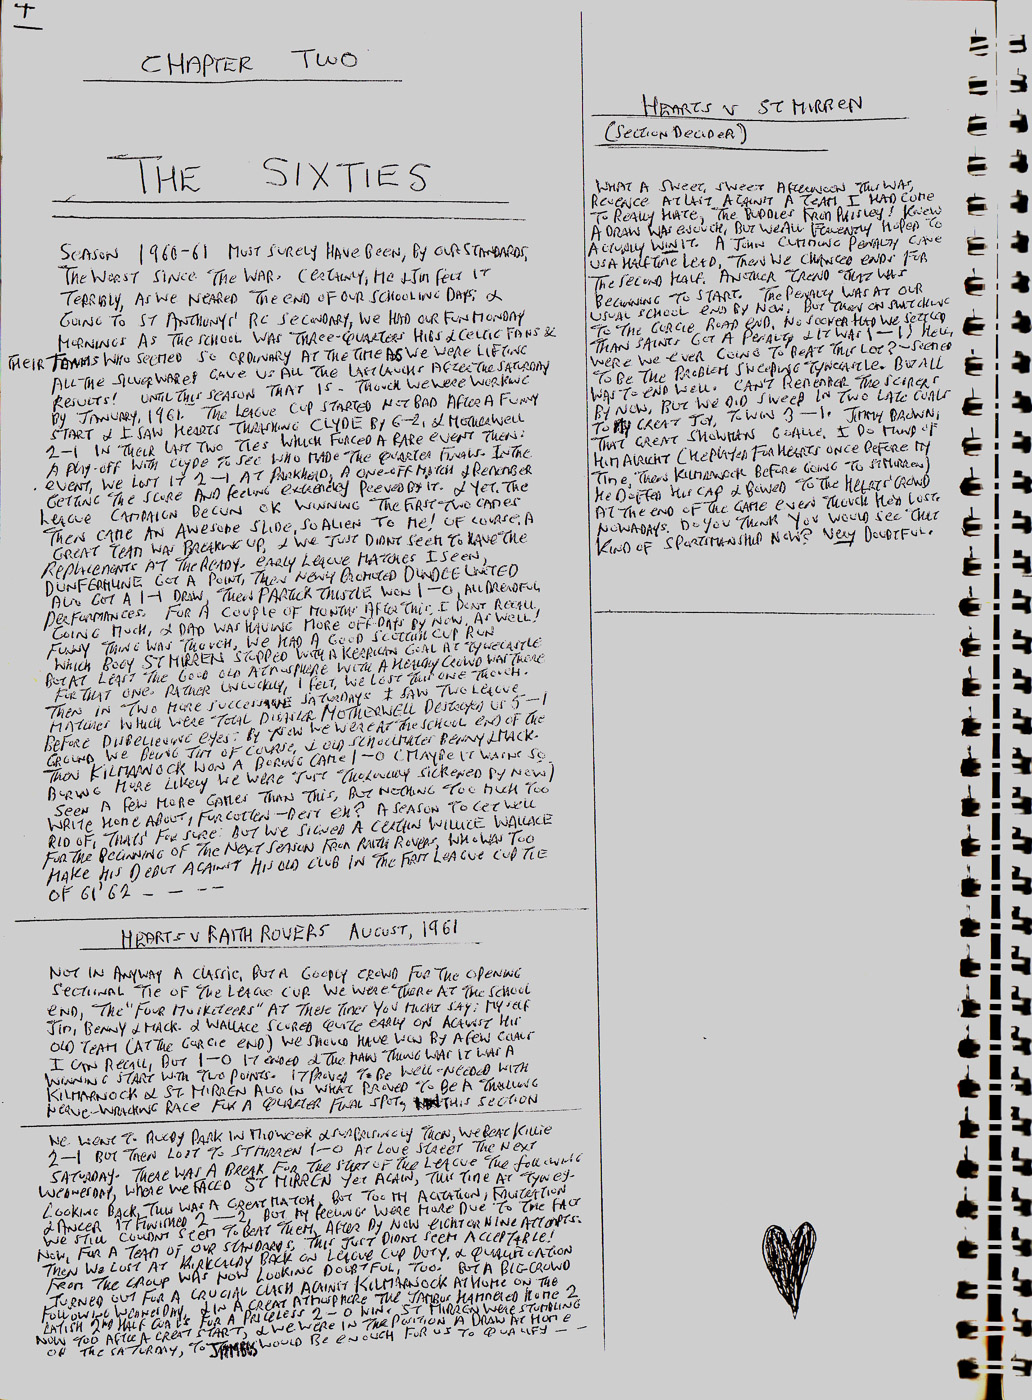 4
CHAPTER TWO
THE SIXTIES
SEASON 1960-61 MUST SURELY HAVE BEEN, BY OUR STANDARDS,
THE WORST SINCE THE WAR. CERTAINLY, ME & JIM FELT IT
TERRIBLY, AS WE NEARED THE END OF OUR SCHOOLING DAYS, &
GOING TO ST ANTHONYS' RC SECONDARY, WE HAD OUR FUN MONDAY
MORNINGS AS THE SCHOOL WAS THREE-QUARTERS HIBS & CELTIC FANS &
THEIR TEAMS WHO SEEMED SO ORDINARY AT THE TIME AS WE WERE LIFTING
ALL THE SILVERWARE! GAVE US ALL THE LAST LAUGHS AFTER THE SATURDAY
RESULTS! UNTIL THIS SEASON THAT IS - THOUGH WE WERE WORKING
BY JANUARY, 1961. THE LEAGUE CUP STARTED NOT BAD AFTER A FUNNY
START & I SAW HEARTS THRASHING CLYDE BY 6-2, & MOTHERWELL
2-1 IN THEIR LAST TWO TIES WHICH FORCED A RARE EVENT THEN:
A PLAY-OFF WITH CLYDE TO SEE WHO MADE THE QUARTER FINALS. IN THE
EVENT, WE LOST IT 2-1 AT PARKHEAD, A ONE-OFF MATCH & REMEMBER
GETTING THE SCORE AND FEELING EXTREMELY PEEVED BY IT. & YET, THE
LEAGUE CAMPAIGN BEGUN OK WINNING THE FIRST TWO GAMES
THEN CAME AN AWESOME SLIDE, SO ALIEN TO ME! OF COURSE, A
GREAT TEAM WAS BREAKING UP, & WE JUST DIDNT SEEM TO HAVE THE
REPLACEMENTS AT THE READY. EARLY LEAGUE MATCHES I SEEN,
DUNFERMLINE GOT A POINT, THEN NEWLY PROMOTED DUNDEE UNITED
ALSO GOT A 1-1 DRAW, THEN PARTICK THISTLE WON 1-0, ALL DREADFUL
PERFORMANCES. FOR A COUPLE OF MONTHS AFTER THIS, I DONT RECALL,
GOING MUCH, & DAD WAS HAVING MORE OFF-DAYS BY NOW, AS WELL!
FUNNY THING WAS THOUGH, WE HAD A GOOD SCOTTISH CUP RUN
WHICH BOGY ST MIRREN STOPPED WITH A KERRIGAN GOAL AT TYNECASTLE
BUT AT LEAST THE GOOD OLD ATMOSPHERE WITH A HEALTHY CROWD WAS THERE
FOR THAT ONE. RATHER UNLUCKILY, I FELT, WE LOST THIS ONE THOUGH.
THEN IN TWO MORE SUCCESSIVE SATURDAYS I SAW TWO LEAGUE
MATCHES WHICH WERE TOTAL DISASTER MOTHERWELL DESTROYED US 5-1
BEFORE DISBELIEVING EYES: BY NOW WE WERE AT THE SCHOOL END OF THE
GROUND WE BEING JIM OF COURSE, & OLD SCHOOLMATES BENNY & MACK.
THEN KILMARNOCK WON A BORING GAME 1-0 (MAYBE IT WASNT SO
BORING MORE LIKELY WE WERE JUST THOROUGHLY SICKENED BY NOW)
SEEN A FEW MORE GAMES THAN THIS, BUT NOTHING TOO MUCH TOO
WRITE HOME ABOUT, FORGOTTEN - BEST EH? A SEASON TO GET WELL
RID OF, THATS' FOR SURE: BUT WE SIGNED A CERTAIN WILLIE WALLACE
FOR THE BEGINNING OF THE NEXT SEASON FROM RAITH ROVERS, WHO WAS TOO
MAKE HIS DEBUT AGAINST HIS OLD CLUB IN THE FIRST LEAGUE CUP TIE
OF 61'62 - - --
HEARTS V RAITH ROVERS AUGUST, 1961
NOT IN ANYWAY A CLASSIC, BUT A GOODLY CROWD FOR THE OPENING
SECTIONAL TIE OF THE LEAGUE CUP. WE WERE THERE AT THE SCHOOL
END, THE "FOUR MUSKETEERS" AT THESE TIMES YOU MIGHT SAY: MYSELF
JIM, BENNY & MACK. & WALLACE SCORED QUITE EARLY ON AGAINST HIS
OLD TEAM (AT THE GORGIE END) WE SHOULD HAVE WON BY A FEW GOALS
I CAN RECALL, BUT 1-0 IT ENDED & THE MAIN THING WAS IT WAS A
WINNING START WITH TWO POINTS. IT PROVED TO BE WELL-NEEDED WITH
KILMARNOCK & ST MIRREN ALSO IN WHAT PROVED TO BE A THRILLING
NERVE-WRACKING RACE FOR A QUARTER FINAL SPOT, THIS SECTION
WE WENT TO RUGBY PARK IN MIDWEEK & SURPRISINGLY THEN, WE BEAT KILLIE
2-1 BUT THEN LOST TO ST MIRREN 1-0 AT LOVE STREET THE NEXT
SATURDAY. THERE WAS A BREAK FOR THE START OF THE LEAGUE THE FOLLOWING
WEDNESDAY, WHERE WE FACED ST MIRREN YET AGAIN, THIS TIME AT TYNEY-
LOOKING BACK, THIS WAS A GREAT MATCH, BUT TOO MY AGITATION, FRUSTRATION
& ANGER IT FINISHED 2-2, BUT MY FEELINGS WERE MORE DUE TO THE FACT
WE STILL COULDNT SEEM TO BEAT THEM, AFTER BY NOW EIGHT OR NINE ATTEMPTS.
NOW, FOR A TEAM OF OUR STANDARDS, THIS JUST DIDNT SEEM ACCEPTABLE!
THEN WE LOST AT KIRKCALDY BACK ON LEAGUE CUP DUTY, & QUALIFICATION
FROM THE GROUP WAS NOW LOOKING DOUBTFUL, TOO. BUT A BIG CROWD
TURNED OUT FOR A CRUCIAL CLASH AGAINST KILMARNOCK AT HOME ON THE
FOLLOWING WEDNESDAY, & IN A GREAT ATMOSPHERE THE JAMBOS HAMMERED HOME 2
LATISH 2ND HALF GOALS FOR A PRICELESS 2-0 WIN. ST MIRREN WERE STUMBLING
NOW TOO AFTER A GREAT START, & WE WERE IN THE POSITION A DRAW AT HOME
ON THE SATURDAY, TO THE JAMBOS WOULD BE ENOUGH FOR US TO QUALIFY - -
HEARTS V ST MIRREN
(SECTION DECIDER)
WHAT A SWEET, SWEET AFTERNOON THIS WAS,
REVENGE AT LAST AGAINST A TEAM I HAD COME
TO REALLY HATE, THE BUDDIES FROM PAISLEY! KNEW
A DRAW WAS ENOUGH, BUT WE ALL FERVENTLY HOPED TO
ACTUALLY WIN IT. A JOHN CUMMING PENALTY GAVE
US A HALF TIME LEAD, THEN WE CHANGED ENDS FOR
THE SECOND HALF. ANOTHER TREND THAT WAS
BEGINNING TO START. THE PENALTY WAS AT OUR
USUAL SCHOOL END BY NOW, BUT THEN ON SWITCHING
TO THE GORGIE ROAD END, NO SOONER HAD WE SETTLED
THAN SAINTS GOT A PENALTY & IT WAS 1-1! HELL,
WERE WE EVER GOING TO BEAT THIS LOT? - SEEMED
TO BE THE PROBLEM SWEEPING TYNECASTLE. BUT ALL
WAS TO END WELL. CAN'T REMEMBER THE SCORERS
BY NOW, BUT WE DID SWEEP IN TWO LATE GOALS
TO MY GREAT JOY, TO WIN 3-1. JIMMY BROWN,
THAT GREAT SHOWMAN GOALIE, I DO MIND OF
HIM ALRIGHT (HE PLAYED FOR HEARTS ONCE BEFORE MY
TIME, THEN KILMARNOCK BEFORE GOING TO ST MIRREN)
HE DOFFED HIS CAP & BOWED TO THE HEARTS' CROWD
AT THE END OF THE GAME EVEN THOUGH HED LOST.
NOWADAYS. DO YOU THINK YOU WOULD SEE THAT
KIND OF SPORTSMANSHIP NOW? VERY DOUBTFUL.